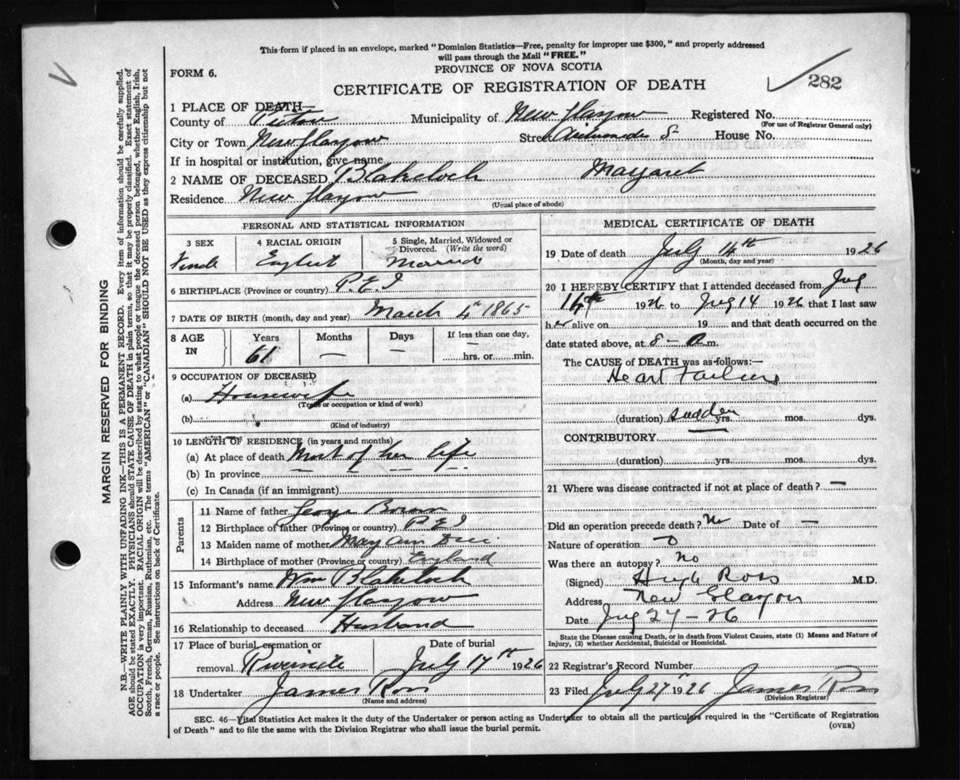 This form if placed in an envelope, marked "Dominion Statistics—Free, penalty for improper use $300," and properly addressed
will pass through the Mail "FREE."
PROVINCE OF NOVA SCOTIA
FORM 6.
CERTIFICATE OF REGISTRATION OF DEATH
282
1 PLACE OF DEATH—
County of Pictou Municipality of New Glasgow Registered No.
(For use of Registrar General only)
City or Town New Glasgow Street House No.
If in hospital or institution, give name
2 NAME OF DECEASED Blakeloch Margaret
Residence New Glasgow
(Usual place of abode)
PERSONAL AND STATISTICAL INFORMATION
3 SEX 4 RACIAL ORIGIN 5 Single, Married, Widowed or Divorced. (Write the word)
Female English Married
6 BIRTHPLACE (Province or country) P.E.I
7 DATE OF BIRTH (month, day and year) March 4th 1865
8 AGE IN Years Months Days If less than one day,
61 — — — hrs. or min.
9 OCCUPATION OF DECEASED
(a) Housewife
(Trade or occupation or kind of work)
(b)
(Kind of industry)
10 LENGTH OF RESIDENCE (in years and months)
(a) At place of death Most of her life
(b) In province — — — — —
(c) In Canada (if an immigrant)
Parents
11 Name of father George
12 Birthplace of father (Province or country) P E I
13 Maiden name of mother Mary Ann
14 Birthplace of mother (Province or country) England
15 Informant's name Wm Blakeloch
Address New Glasgow
16 Relationship to deceased Husband
17 Place of burial, cremation or Date of burial
removal Riverside July 17th 1926
18 Undertaker James Ross
(Name and address)
MEDICAL CERTIFICATE OF DEATH
19 Date of death July 14th 1926
(Month, day and year)
20 I HEREBY CERTIFY that I attended deceased from July
14th 1926 to July 14 1926 that I last saw
her alive on 19 and that death occurred on
date stated above, at 8- a.m.
The CAUSE of DEATH was as follows:—
Heart Failure
(duration) sudden yrs. mos. dys.
CONTRIBUTORY
(duration) yrs. mos. dys.
21 Where was disease contracted if not at place of death? —
Did an operation precede death? No Date of —
Nature of operation 0
Was there an autopsy? No
(Signed) Hugh Ross M.D.
Address New Glasgow
Date July 27-26
State the Disease causing Death, or in death from Violent Causes, state (1) Means and Nature of
Injury, (2) whether Accidental, Suicidal or Homicidal.
22 Registrar's Record Number
23 Filed July 27 1926 James Ross
(Division Registrar)
SEC. 46—Vital Statistics Act makes it the duty of the Undertaker or person acting as Undertaker to obtain all the particulars required in the "Certificate of Registration
of Death" and to file the same with the Division Registrar who shall issue the burial permit. (OVER)
MARGIN RESERVED FOR BINDING
N.B.—WRITE PLAINLY WITH UNFADING INK—THIS IS A PERMANENT RECORD. Every item of information should be carefully supplied.
AGE should be stated EXACTLY. PHYSICIANS should STATE CAUSE OF DEATH in plain terms, so that it may be properly classified. Exact statement of
OCCUPATION is very important. RACIAL ORIGIN will be described by stating to what people or tongue the deceased person belonged, whether English, Irish,
Scotch, French, German, Russian, Ruthenian, etc. The terms "AMERICAN" or "CANADIAN" SHOULD NOT BE USED as they express citizenship but not
a race or people. See instructions on back of Certificate.